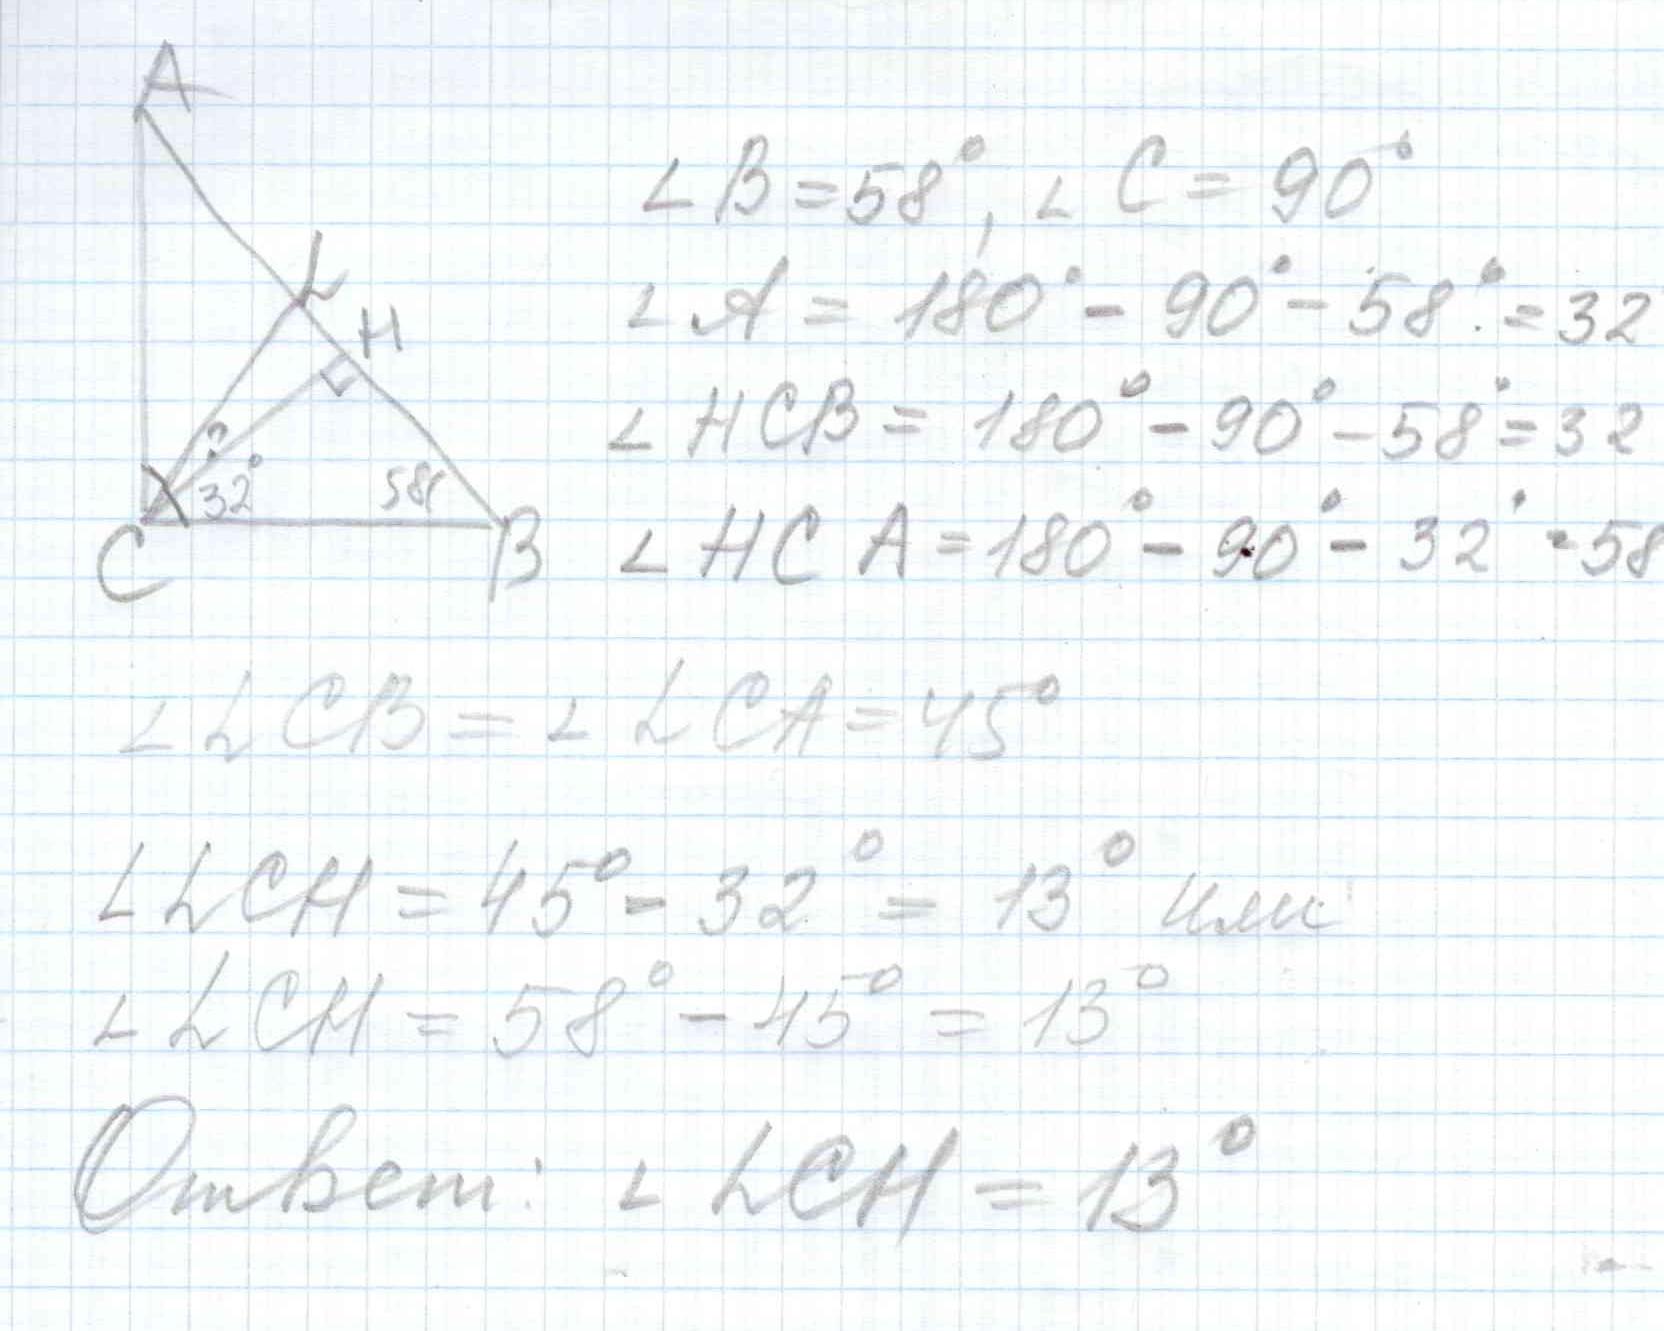 A
L
H
?
32°
58
C
B
∠B=58°, ∠C=90°
∠A=180°-90°-58°=32
∠HCB=180°-90°-58°=32
∠HCA=180°-90°-32°=58
∠LCB=∠LCA=45°
∠LCH=45°-32°=13° или
∠LCH=58°-45°=13°
Ответ: ∠LCH=13°